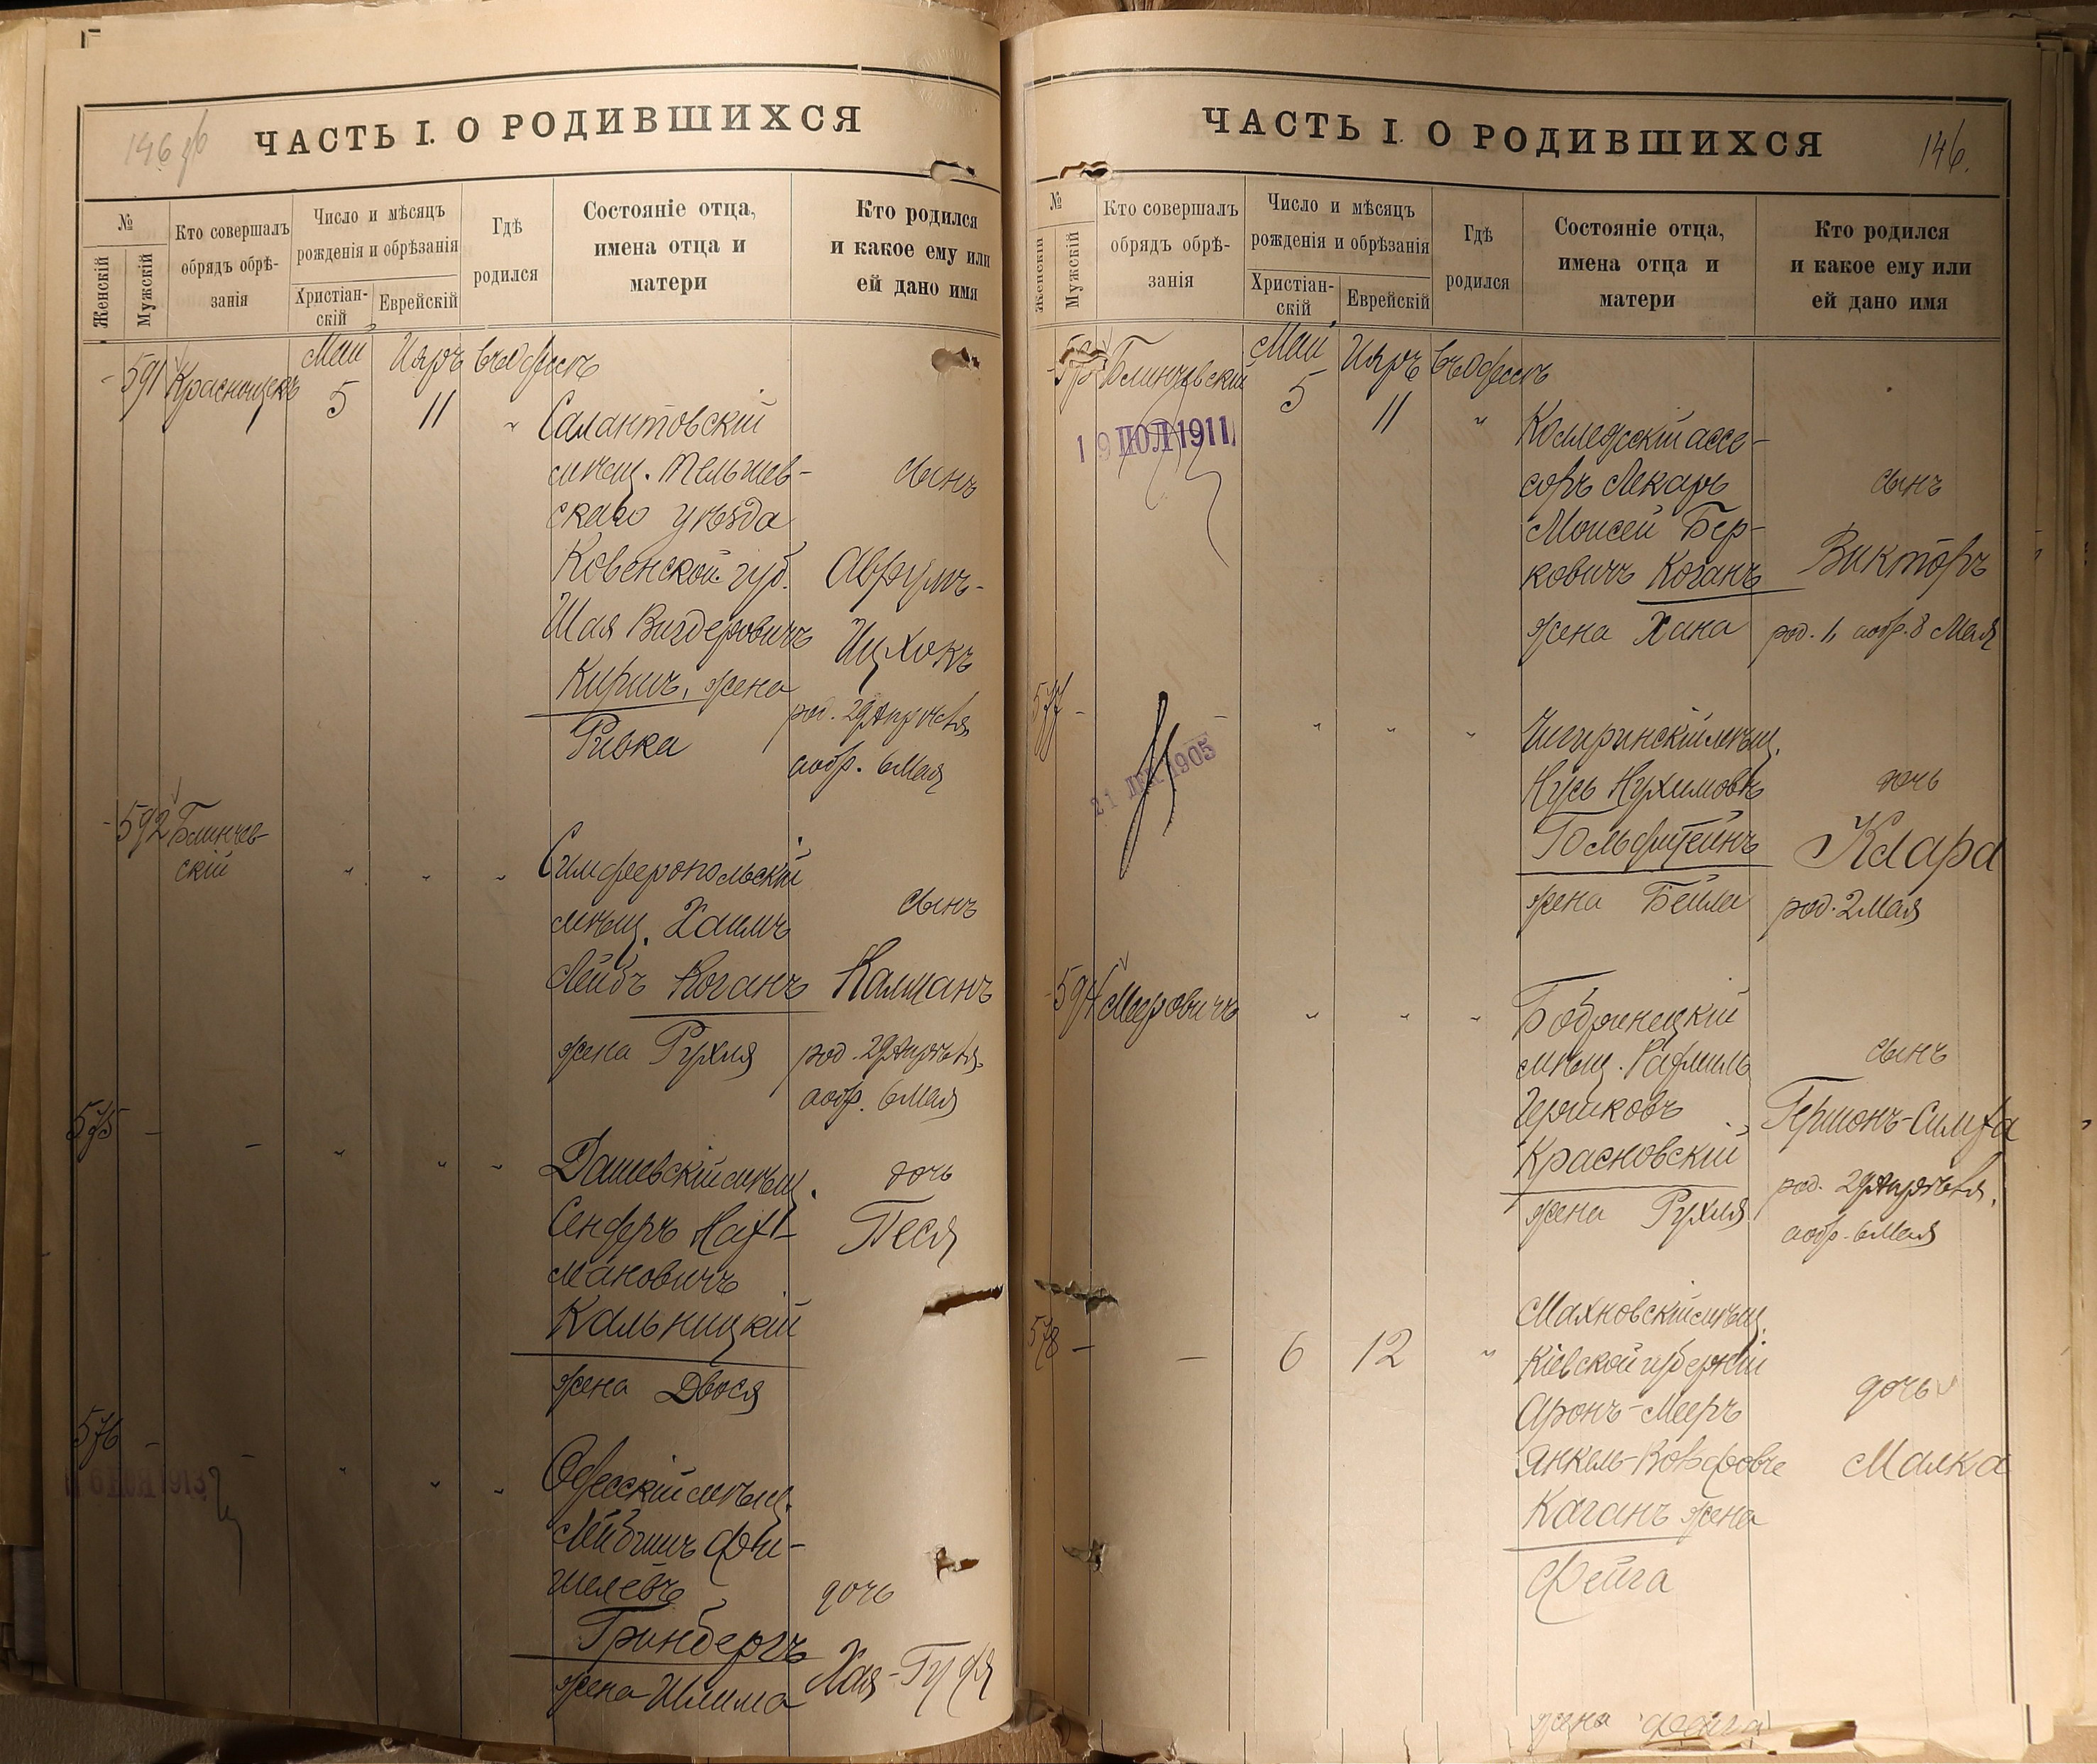 146 об
ЧАСТЬ I. О РОДИВШИХСЯ
№
Женскій
Мужскій
Кто совершалъ
обрядъ обрѣ-
занія
Число и мѣсяцъ
рожденія и обрѣзанія
Христіан-
скій
Еврейскій
Гдѣ
родился
Состояніе отца,
имена отца и
матери
Кто родился
и какое ему или
ей дано имя
Май Ияръ въ Одессѣ
- 591 Краснощекъ 5 11 "
Салантовскій
мѣщ. Тельшев-
скаго уѣзда
Ковенской губ.
Шая Вигдеровичъ
Киршъ, жена
Ривка
сынъ
Аврумъ-
Ицхокъ
род. 29 Апрѣля
а обр. 6 Мая
- 592 Блинчев-
скій " " "
Симферопольскій
мѣщ. Хаимъ
Лейбъ Коганъ
жена Рухля
сынъ
Калманъ
род. 29 Апрѣля
а обр. 6 Мая
575 - - " " "
Дашевскій мѣщ.
Сендеръ Нах-
мановичъ
Кальницкій
жена Двося
дочь
Песя
576 - - " " "
6 НОЯ 1913
Одесскій мѣщ.
Лейбишъ Фи-
шелевъ
Гринбергъ
жена Шлима
дочь
Хая-Гудя
ЧАСТЬ I. О РОДИВШИХСЯ
146.
№
Женскій
Мужскій
Кто совершалъ
обрядъ обрѣ-
занія
Число и мѣсяцъ
рожденія и обрѣзанія
Христіан-
скій
Еврейскій
Гдѣ
родился
Состояніе отца,
имена отца и
матери
Кто родился
и какое ему или
ей дано имя
Май Ияръ въ Одессѣ
Блинчевскій 5 11 "
19 ІЮЛ 1911
Коллежскій ассе-
соръ Лекарь
Моисей Бер-
ковичъ Коганъ
жена Хана
сынъ
Викторъ
род. 1, а обр. 8 Мая
577 - - " " "
21 ДЕК 1905
Чигиринскій мѣщ.
Нусь Нухимовъ
Гольдштейнъ
жена Бейла
дочь
Клара
род. 2 Мая
- 594 Мееровичъ " " "
Бобринецкій
мѣщ. Рафаилъ
Гершковъ
Красновскій
жена Рухля
сынъ
Гершонъ-Симха
род. 29 Апрѣля,
а обр. 6 Мая
578 - - 6 12 "
Махновскій мѣщ.
Кіевской губерніи
Аронъ-Мееръ
Янкель-Вольфовъ
Каганъ жена
Фейга
дочь
Малка
жена Фейга